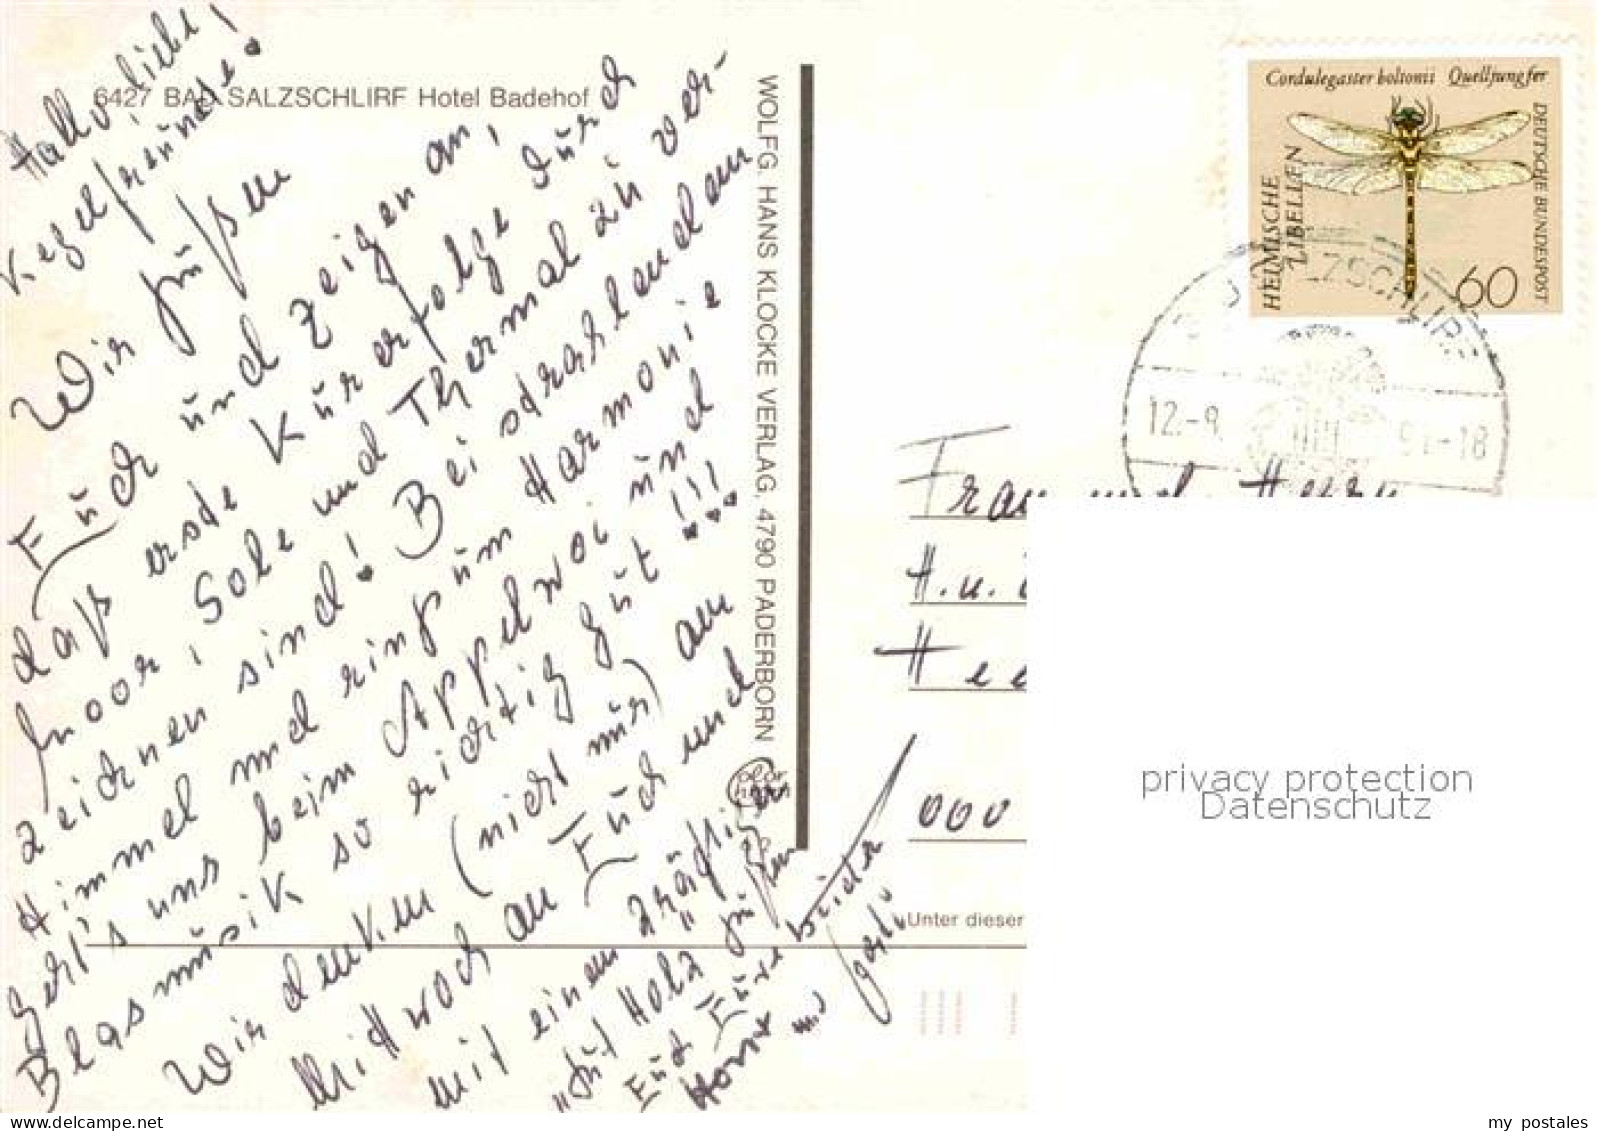 6427 BAD SALZSCHLIRF Hotel Badehof
Hallo, liebe
Kegelfreunde!
Wir grüßen
Euch und zeigen an,
daß erste Kurerfolge durch
Moor, Sole und Thermal zu ver-
zeichnen sind! Bei strahlendem
Himmel und rings um Harmonie
geht's uns beim Appelwoi und
Blasmusik so richtig gut!!!
Wir denken (nicht nur) am
Mittwoch an Euch und
mit einem kräftigen
"Gut Holz" grüßen
Euch Eure beiden
Horst und
WOLFG. HANS KLOCKE VERLAG, 4790 PADERBORN
Cordulegaster boltonii Quelljungfer
HEIMISCHE
LIBELLEN
DEUTSCHE BUNDESPOST
60
LZSCHLIRF
12.-9.
-18
Frau und Herrn
H. u.
000
Unter dieser
privacy protection
Datenschutz
my postales